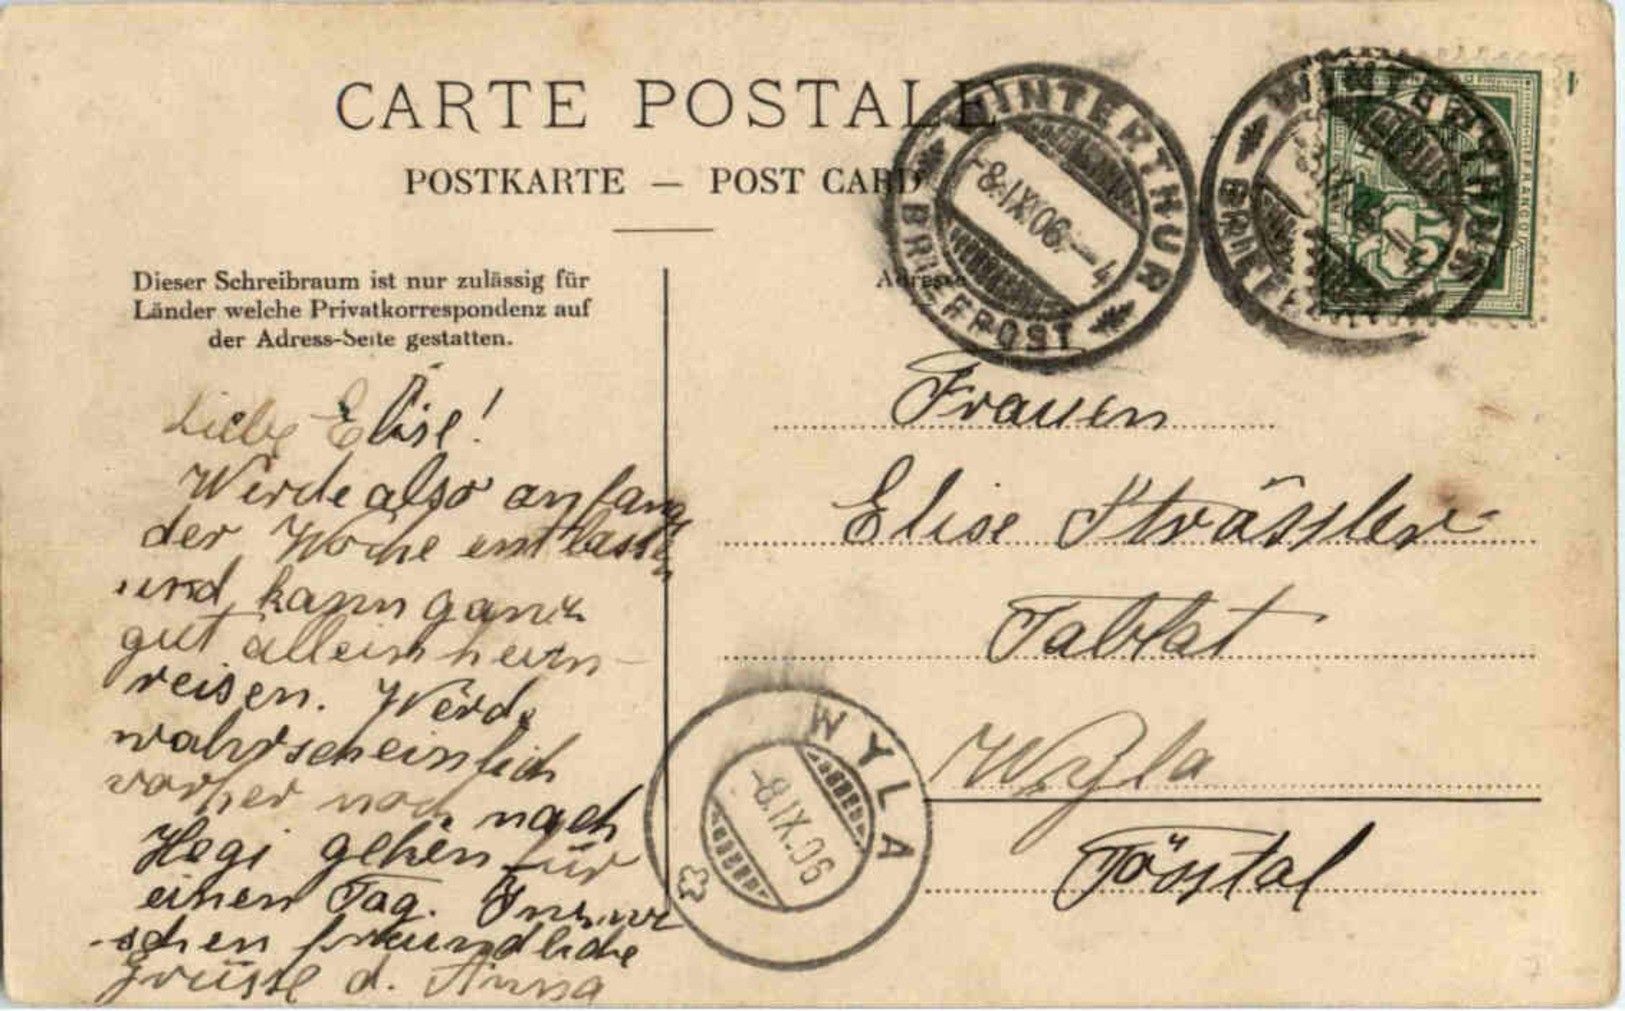 CARTE POSTALE
POSTKARTE — POST CARD
WINTERTHUR
-8.IX.06.–4
BRIEFPOST
WINTERTHUR
BRIEFP
FRANCO
Dieser Schreibraum ist nur zulässig für
Länder welche Privatkorrespondenz auf
der Adress-Seite gestatten.
Adresse
Liebe Elise!
Werde also anfang
der Woche entlassen
und kann ganz
gut allein heim-
reisen. Werde
wahrscheinlich
vorher noch nach
Hegi gehen für
einen Tag. Inzwi
-schen freundliche
Grüsse d. Anna
Frauen
Elise Strässler
Tablat
Wyla
Tösstal
WYLA
-8.IX.06